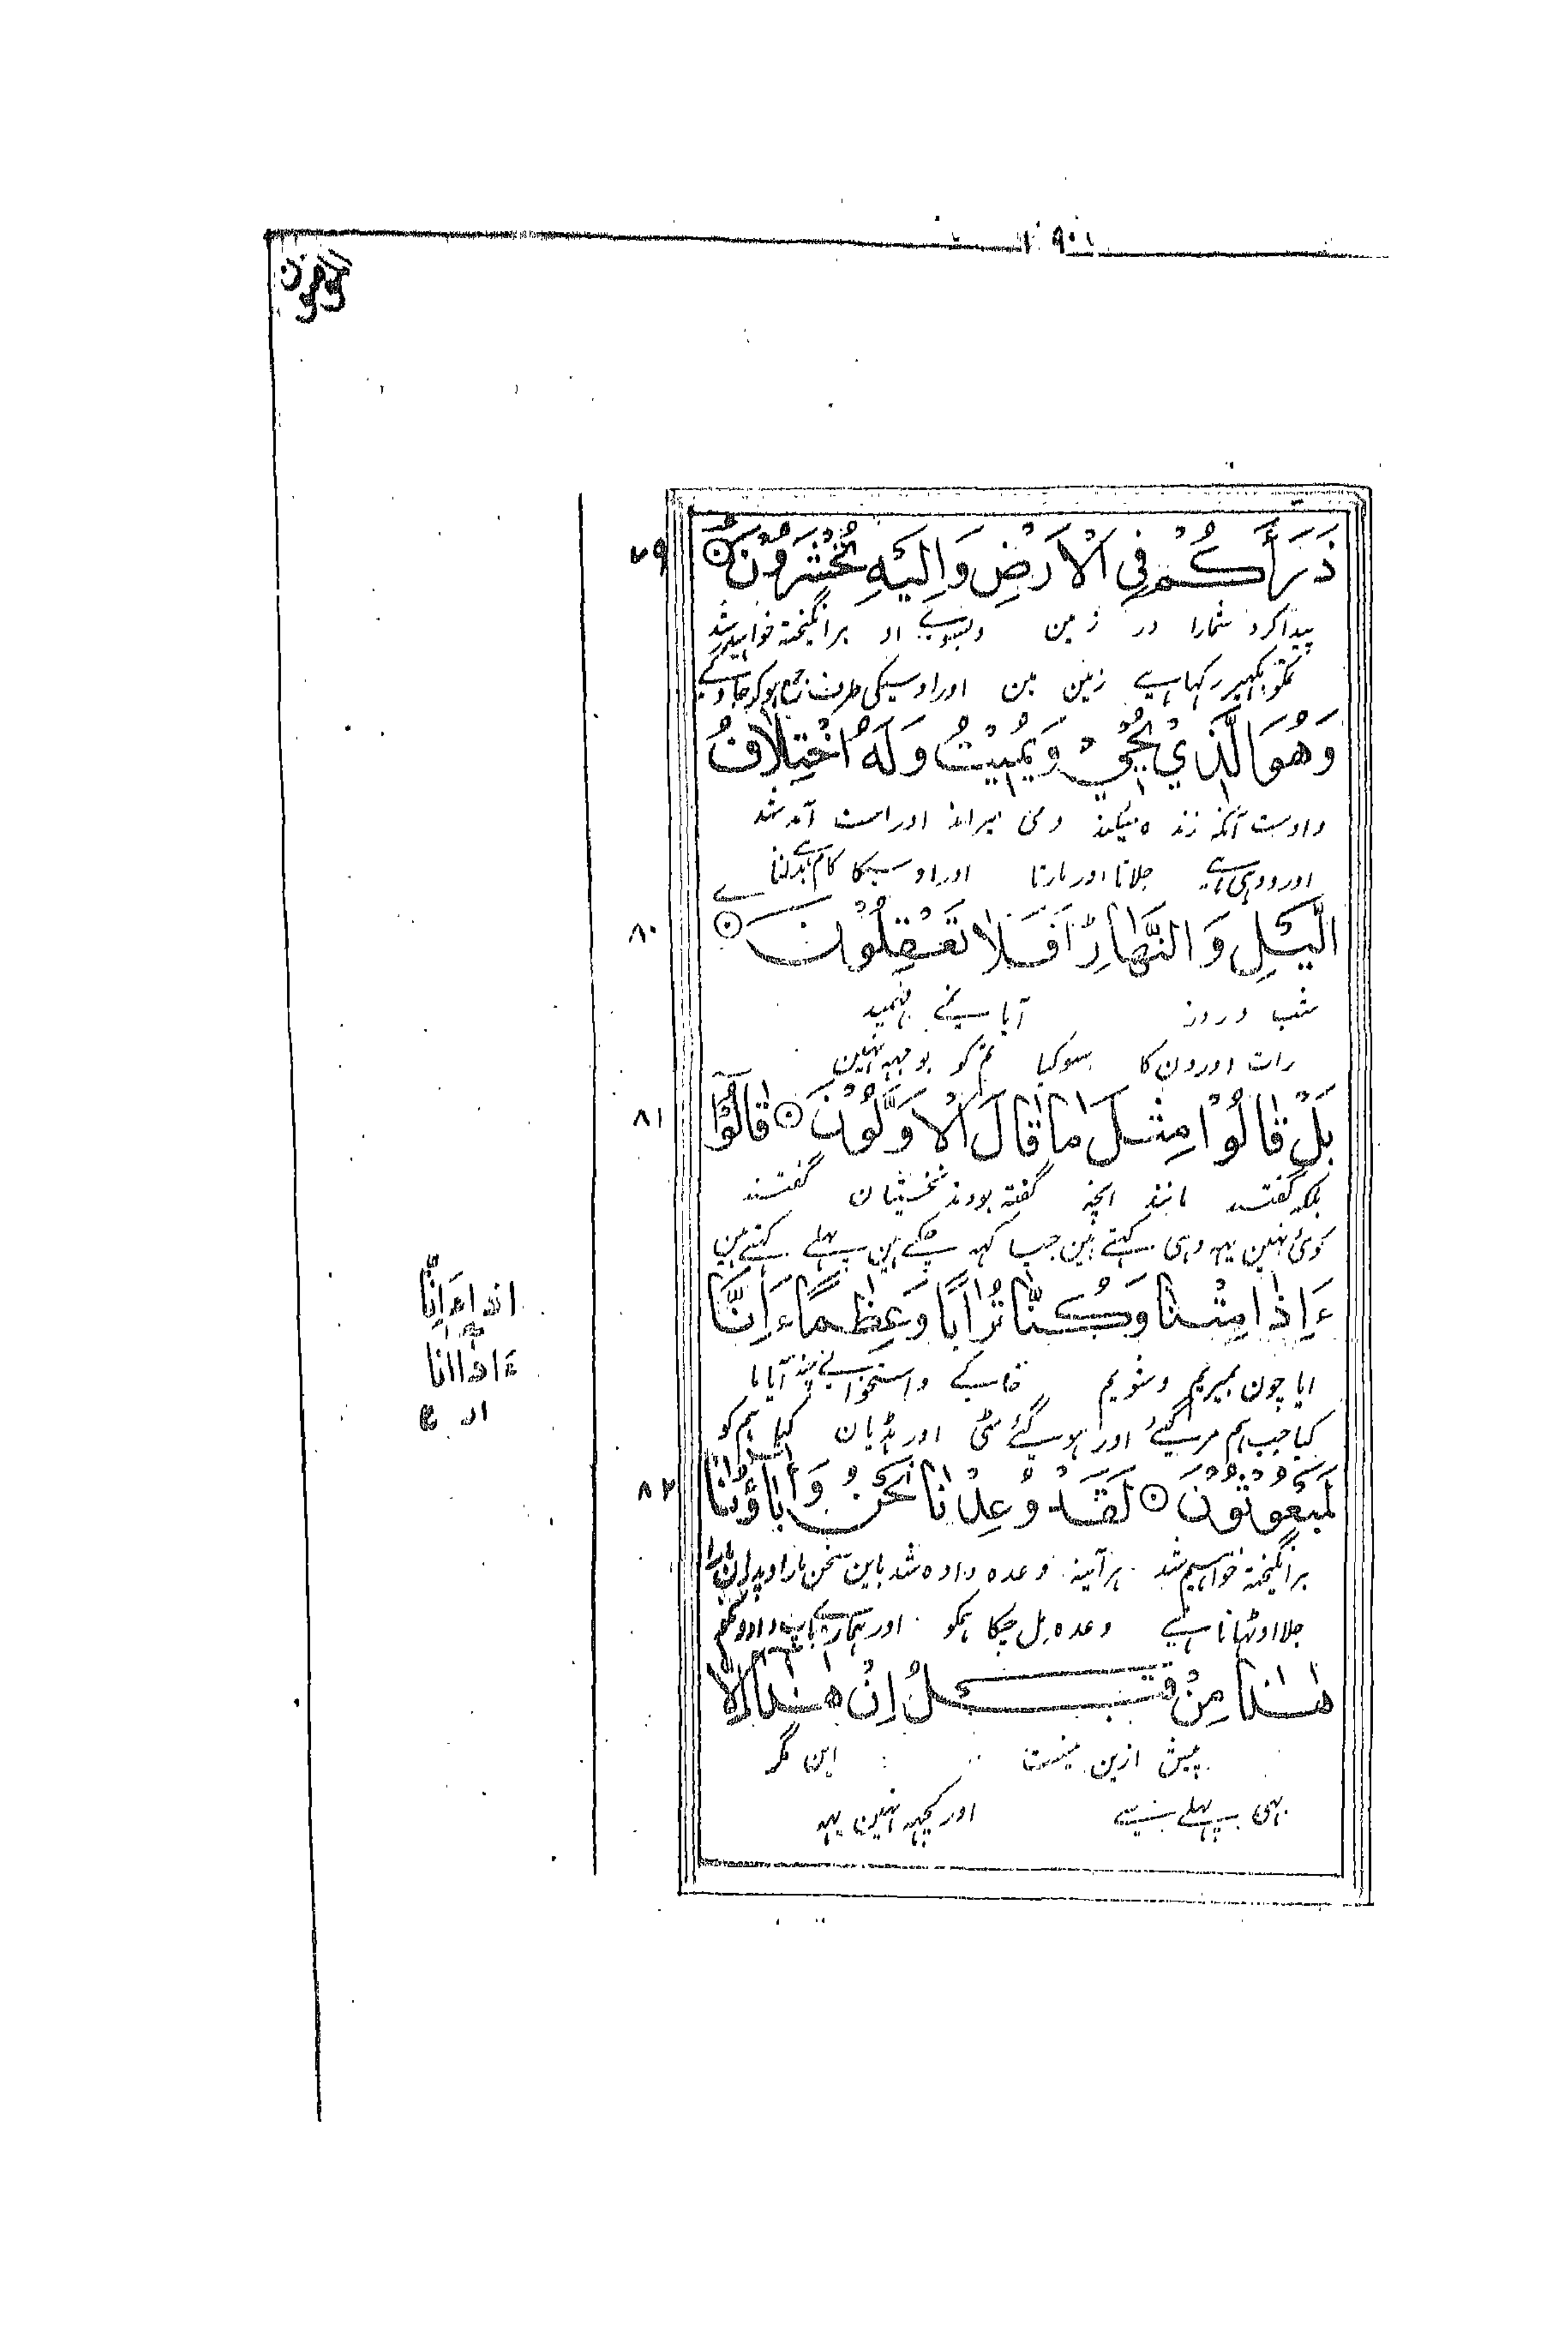 ذَرَأَكُمْ فِي الْاَرْضِ وَاِلَيْهِ تُحْشَرُوْنَ
۷۹
پیدا کرد شمارا در زمین وبسوے او برانگیختہ خواہید شد
تمکو بکھیر رکھا ہے زمین مین اور اوسیکی طرف جمع ہو کر جاوگے
وَهُوَ الَّذِيْ يُحْيٖ وَيُمِيْتُ وَلَهُ اخْتِلَافُ
واوست آنکہ زندہ میکند ومی میراند اوراست آمد شد
اور وہی ہے جلاتا اور مارتا اور اوسیکا کام ہے بدلنا
الَّيْلِ وَالنَّهَارِ اَفَلَا تَعْقِلُوْنَ
۸۰
شب و روز آیا نمے فہمید
رات اور دن کا سو کیا تم کو بوجہہ نہین
بَلْ قَالُوْا مِثْلَ مَا قَالَ الْاَوَّلُوْنَ قَالُوْٓا
۸۱
بلکہ گفتند مانند انچہ گفتہ بودند نخستینان گفتند
کوئی نہین یہہ وہی کہتے ہین جیسا کہہ چکے ہین پہلے کہتے ہین
ءَاِذَا مِتْنَا وَكُنَّا تُرَابًا وَعِظَامًا ءَاِنَّا
ایا چون بمیریم وشویم خاکے واستخوانے چند آیا ما
کیا جب ہم مر گئے اور ہو گئے مٹی اور ہڈیان کیا ہم کو
لَمَبْعُوْثُوْنَ لَقَدْ وُعِدْنَا نَحْنُ وَاٰبَاؤُنَا
۸۲
برانگیختہ خواہیم شد ہر آینہ وعدہ دادہ شد باین سخن مارا وپدران مارا
جلا اوٹھانا ہے وعدہ مل چکا ہمکو اور ہمارے باپ دادونکو
هٰذَا مِنْ قَبْلُ اِنْ هٰذَا اِلَّا
پیش ازین نیست این مگر
یہی پہلے سے اور کچھہ نہین یہہ